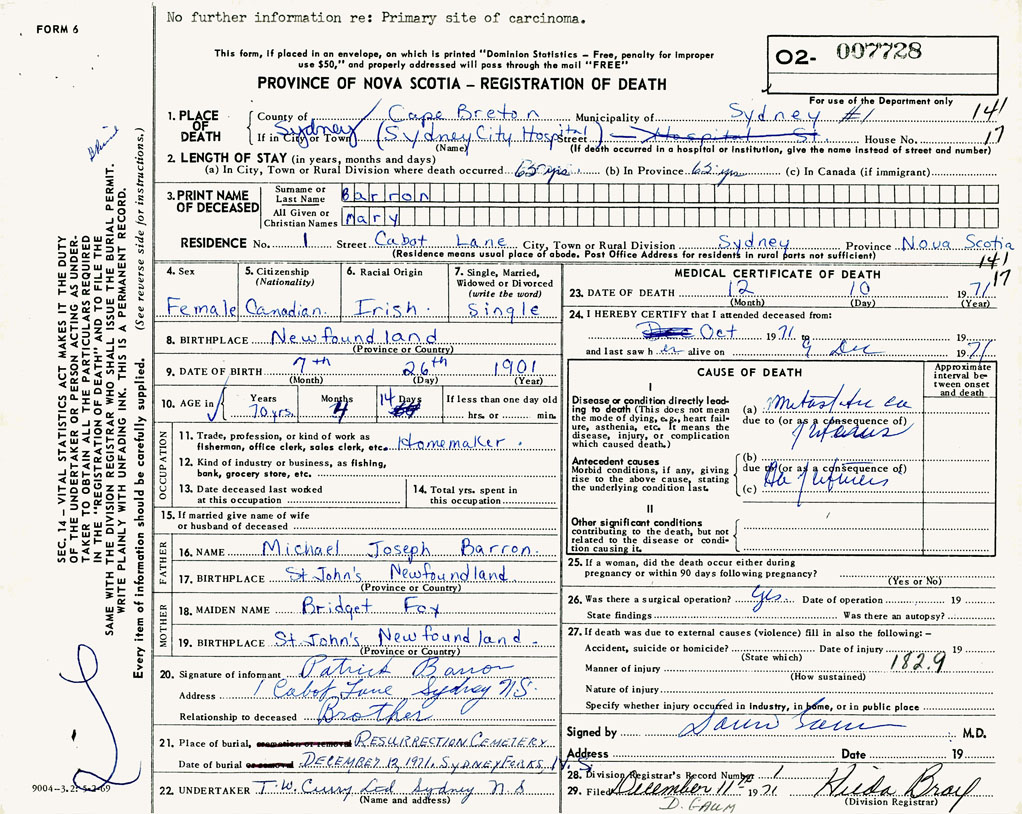 No further information re: Primary site of carcinoma.
FORM 6
This form, if placed in an envelope, on which is printed "Dominion Statistics – Free, penalty for improper
use $50," and properly addressed will pass through the mail "FREE"
O2- 007728
PROVINCE OF NOVA SCOTIA – REGISTRATION OF DEATH
For use of the Department only
1. PLACE OF DEATH
County of Cape Breton Municipality of Sydney #1 141
If in City or Town Sydney (Sydney City Hospital) Street Hospital St. House No. 17
(Name) (If death occurred in a hospital or institution, give the name instead of street and number)
2. LENGTH OF STAY (in years, months and days)
(a) In City, Town or Rural Division where death occurred 65 yrs. (b) In Province 65 yrs (c) In Canada (if immigrant)
3. PRINT NAME OF DECEASED
Surname or Last Name Barron
All Given or Christian Names Mary
RESIDENCE No. 1 Street Cabot Lane City, Town or Rural Division Sydney Province Nova Scotia
(Residence means usual place of abode. Post Office Address for residents in rural parts not sufficient)
141
17
4. Sex Female
5. Citizenship (Nationality) Canadian
6. Racial Origin Irish
7. Single, Married, Widowed or Divorced (write the word) Single
8. BIRTHPLACE Newfoundland
(Province or Country)
9. DATE OF BIRTH 7th 26th 1901
(Month) (Day) (Year)
10. AGE in Years 70 yrs. Months 4 Days 14 If less than one day old
hrs. or min.
OCCUPATION
11. Trade, profession, or kind of work as
fisherman, office clerk, sales clerk, etc. Homemaker.
12. Kind of industry or business, as fishing,
bank, grocery store, etc.
13. Date deceased last worked
at this occupation
14. Total yrs. spent in
this occupation
15. If married give name of wife
or husband of deceased
FATHER
16. NAME Michael Joseph Barron.
17. BIRTHPLACE St. John's Newfoundland
(Province or Country)
MOTHER
18. MAIDEN NAME Bridget Fox
19. BIRTHPLACE St John's Newfoundland
(Province or Country)
20. Signature of informant Patrick Barron
Address 1 Cabot Lane Sydney N.S.
Relationship to deceased Brother
21. Place of burial, cremation or removal RESURRECTION CEMETERY
Date of burial or removal DECEMBER 12, 1971. SYDNEY FORKS, N.S.
22. UNDERTAKER T.W. Curry Ltd Sydney N S
(Name and address)
MEDICAL CERTIFICATE OF DEATH
23. DATE OF DEATH 12 10 1971
(Month) (Day) (Year)
24. I HEREBY CERTIFY that I attended deceased from:
Dec Oct 1971 to
and last saw her alive on 9 Dec 1971
CAUSE OF DEATH
Approximate interval between onset and death
I
Disease or condition directly leading to death (This does not mean
the mode of dying, e.g., heart failure, asthenia, etc. It means the
disease, injury, or complication
which caused death.)
(a) Metastatic ca
due to (or as a consequence of)
of uterus
Antecedent causes
Morbid conditions, if any, giving
rise to the above cause, stating
the underlying condition last.
(b)
due to (or as a consequence of)
(c) of uterus
II
Other significant conditions
contributing to the death, but not
related to the disease or condition causing it.
25. If a woman, did the death occur either during
pregnancy or within 90 days following pregnancy?
(Yes or No)
26. Was there a surgical operation? Yes Date of operation 19
State findings Was there an autopsy?
27. If death was due to external causes (violence) fill in also the following: –
Accident, suicide or homicide? Date of injury 19
(State which)
182.9
Manner of injury
(How sustained)
Nature of injury
Specify whether injury occurred in industry, in home, or in public place
Signed by M.D.
Address Date 19
28. Division Registrar's Record Number 1
29. Filed December 11th 1971 Hilda Bray
(Division Registrar)
D. GAUM
SEC. 14 – VITAL STATISTICS ACT MAKES IT THE DUTY
OF THE UNDERTAKER OR PERSON ACTING AS UNDER-
TAKER TO OBTAIN ALL THE PARTICULARS REQUIRED
IN THE "REGISTRATION OF DEATH" AND TO FILE THE
SAME WITH THE DIVISION REGISTRAR WHO SHALL ISSUE THE BURIAL PERMIT.
WRITE PLAINLY WITH UNFADING INK. THIS IS A PERMANENT RECORD.
Every item of information should be carefully supplied. (See reverse side for instructions.)